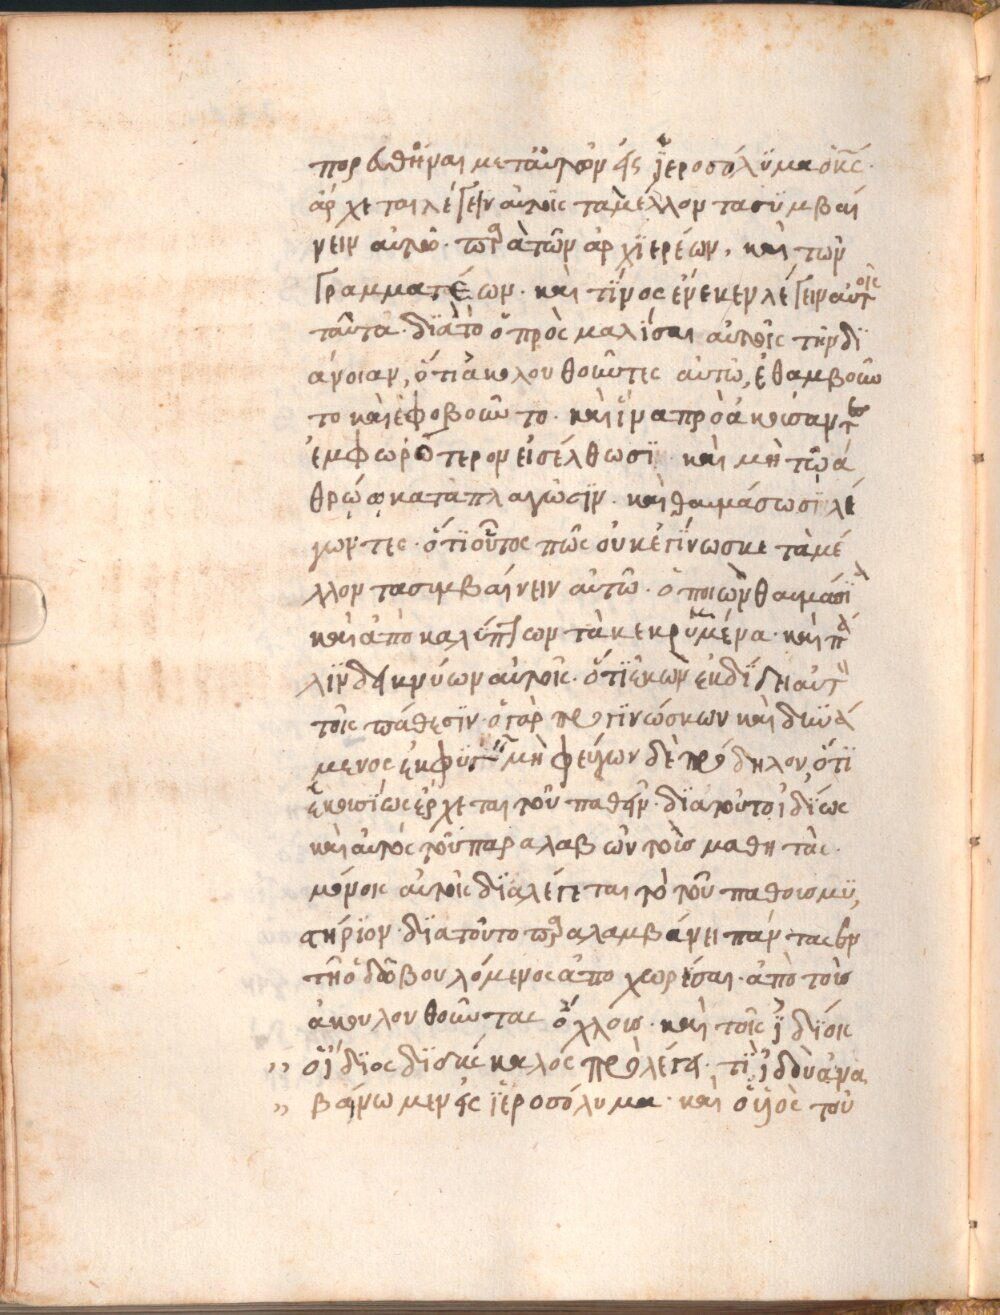 πορευθῆναι μετ' αὐτὸν εἰς ϊεροσόλϋμα
ἄρχεται λέγειν αὐτοῖς τὰ μέλλοντα σϋμβαί
νειν αὐτῶ· ἀπὸ τῶν ἀρχϊερέων, καὶ τῶν
γραμματέων· καὶ τίνος ἕνεκεν λέγειν αὐτοῖς
ταῦτα· δϊὰ τὸ αὐτοῖς τὴν δϊ
άνοιαν, ὅτι ἀκολουθοῦντες αὐτῶ, ἐθαμβοῦν
το καὶ ἐφοβοῦντο· καὶ ἵνα προακούσαντες
ἐμφωρότερον εἰσέλθωσϊ· καὶ μὴ τῶ ἀ
θρόω καταπλαγῶσϊν· καὶ θαυμάσωσϊ λέ
γωντες· ὅτϊ οὗτος πῶς οὐκ ἐγίνωσκε τὰ μέ
λλοντα σιμβαίνειν αὐτῶ· ὁ ποιὼν θαυμάσϊα
καὶ ἀποκαλύπτων τὰ κεκρυμμένα· καὶ πά
λϊν δεικνύων αὐτοῖς· ὅτϊ ἑκὼν ἐκδϊδει αὐτ
τοῖς πάθεσϊν· ὁ γὰρ προγϊνώσκων καὶ δυνά
μενος ἐκφϋγεῖν μὴ φεύγων δὲ πρόδηλον, ὅτϊ
ἑκουσίως ἔρχεται τοῦ παθεῖν· δϊὰ τοῦτο ἰδίως
καὶ αὐτὸς τούς παραλαβὼν τοὺς μαθητὰς·
μόνοις αὐτοῖς δϊαλέγεται τὸ τοῦ παθους μϋ,
στήριον· δϊὰ τοῦτο παραλαμβάνει πάντας ἐν
τῆ ὁδῶ βουλόμενος ἀποχωρῆσαι· ἀπὸ τοὺς
ἀκουλουθοῦντας ὄχλους· καὶ τοῖς ϊδϊοις
,, ὁ ἴδϊος δϊδάσκαλος προλέγει· ὅτϊ ἰδοὺ ἀνα
,, βαίνωμεν εἰς ϊεροσόλυμα· καὶ ὁ υἱὸς τοῦ